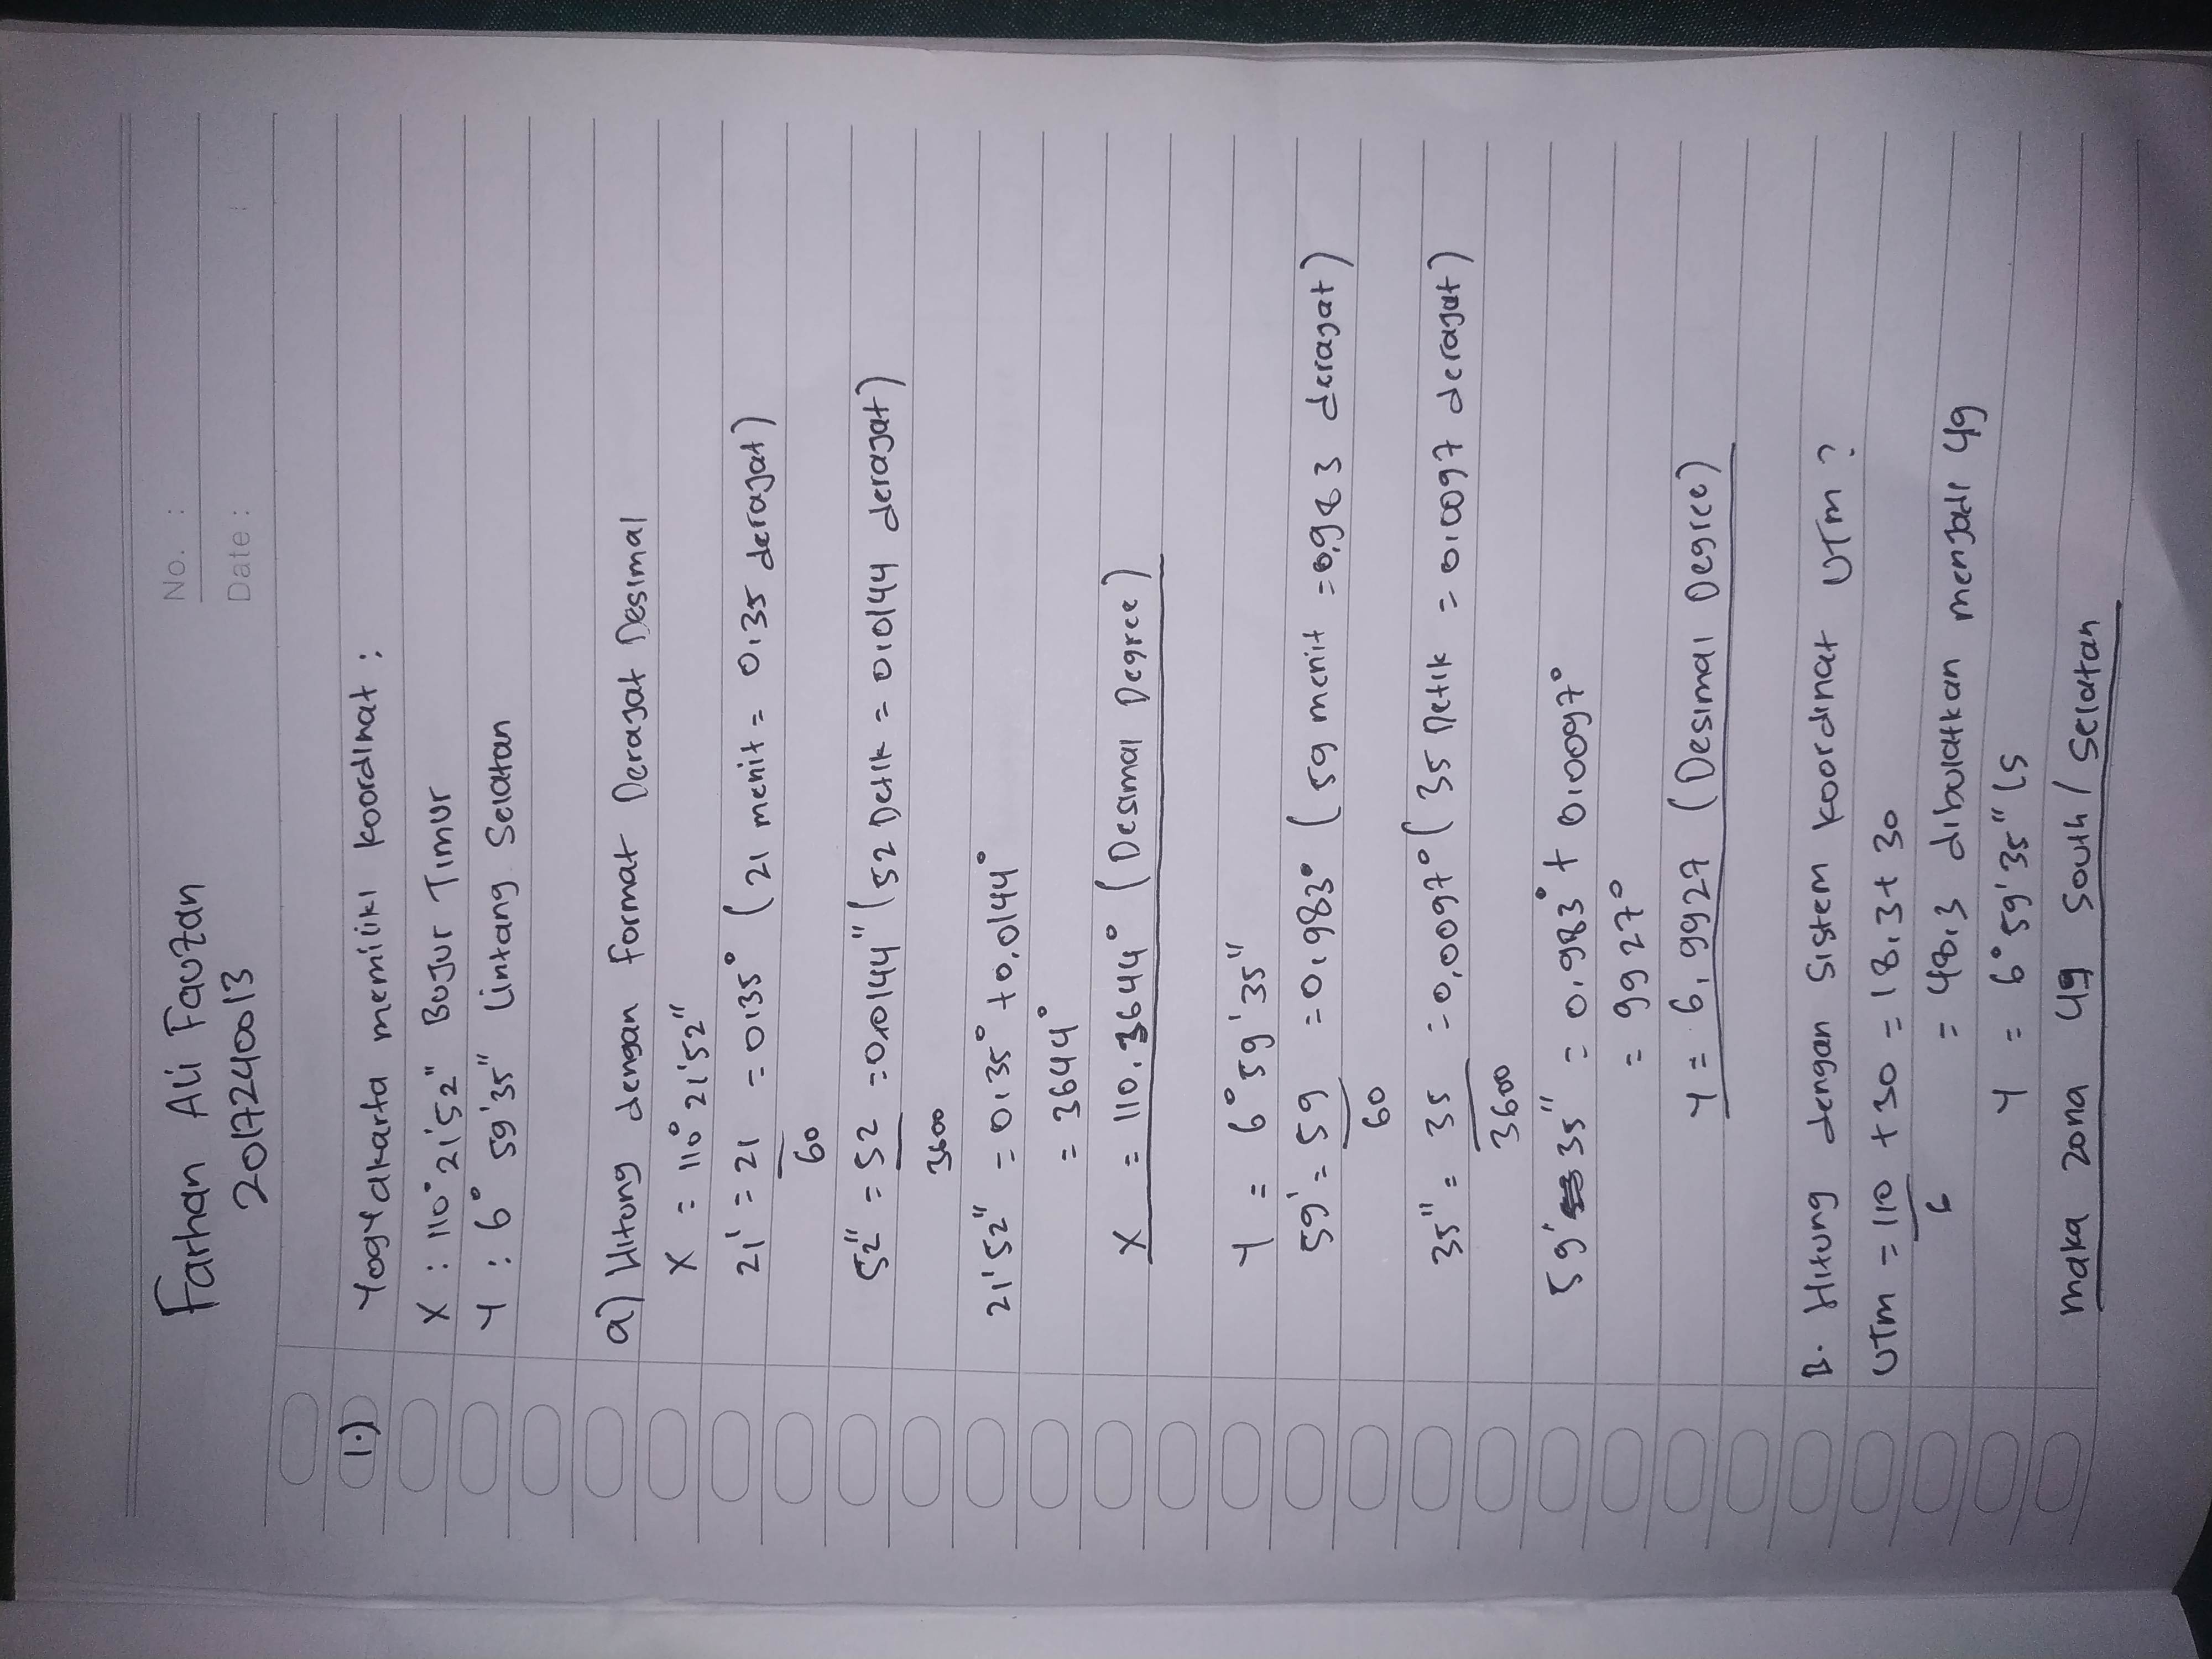 Farhan Ali Fauzan
No. :
2017240013
Date : :
1.) Yogyakarta memiliki koordinat :
X : 110° 21'52" Bujur Timur
Y : 6° 59'35" Lintang Selatan
a) Hitung dengan format Derajat Desimal
X = 110° 21'52"
21' = 21 = 0,35° (21 menit = 0,35 derajat)
60
52" = 52 = 0,0144" (52 Detik = 0,0144 derajat)
3600
21'52" = 0,35° + 0,0144°
= 3644°
X = 110,3644° (Desimal Degree)
Y = 6° 59'35"
59' = 59 = 0,983° (59 menit = 0,983 derajat)
60
35" = 35 = 0,0097° (35 Detik = 0,0097 derajat)
3600
59' 35" = 0,983° + 0,0097°
= 9927°
Y = 6,9927 (Desimal Degree)
B. Hitung dengan Sistem koordinat UTM ?
UTM = 110 + 30 = 18,3 + 30
6
= 48,3 dibulatkan menjadi 49
Y = 6° 59'35" LS
maka zona 49 South / Selatan